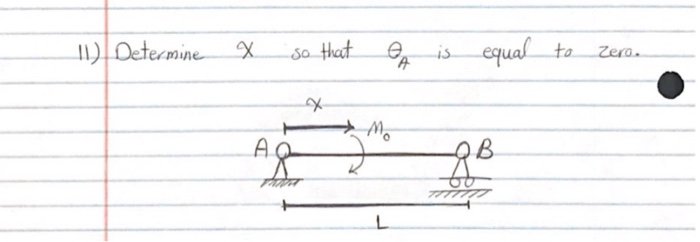 11) Determine x so that θ_A is equal to zero.
x
M₀
A B
L